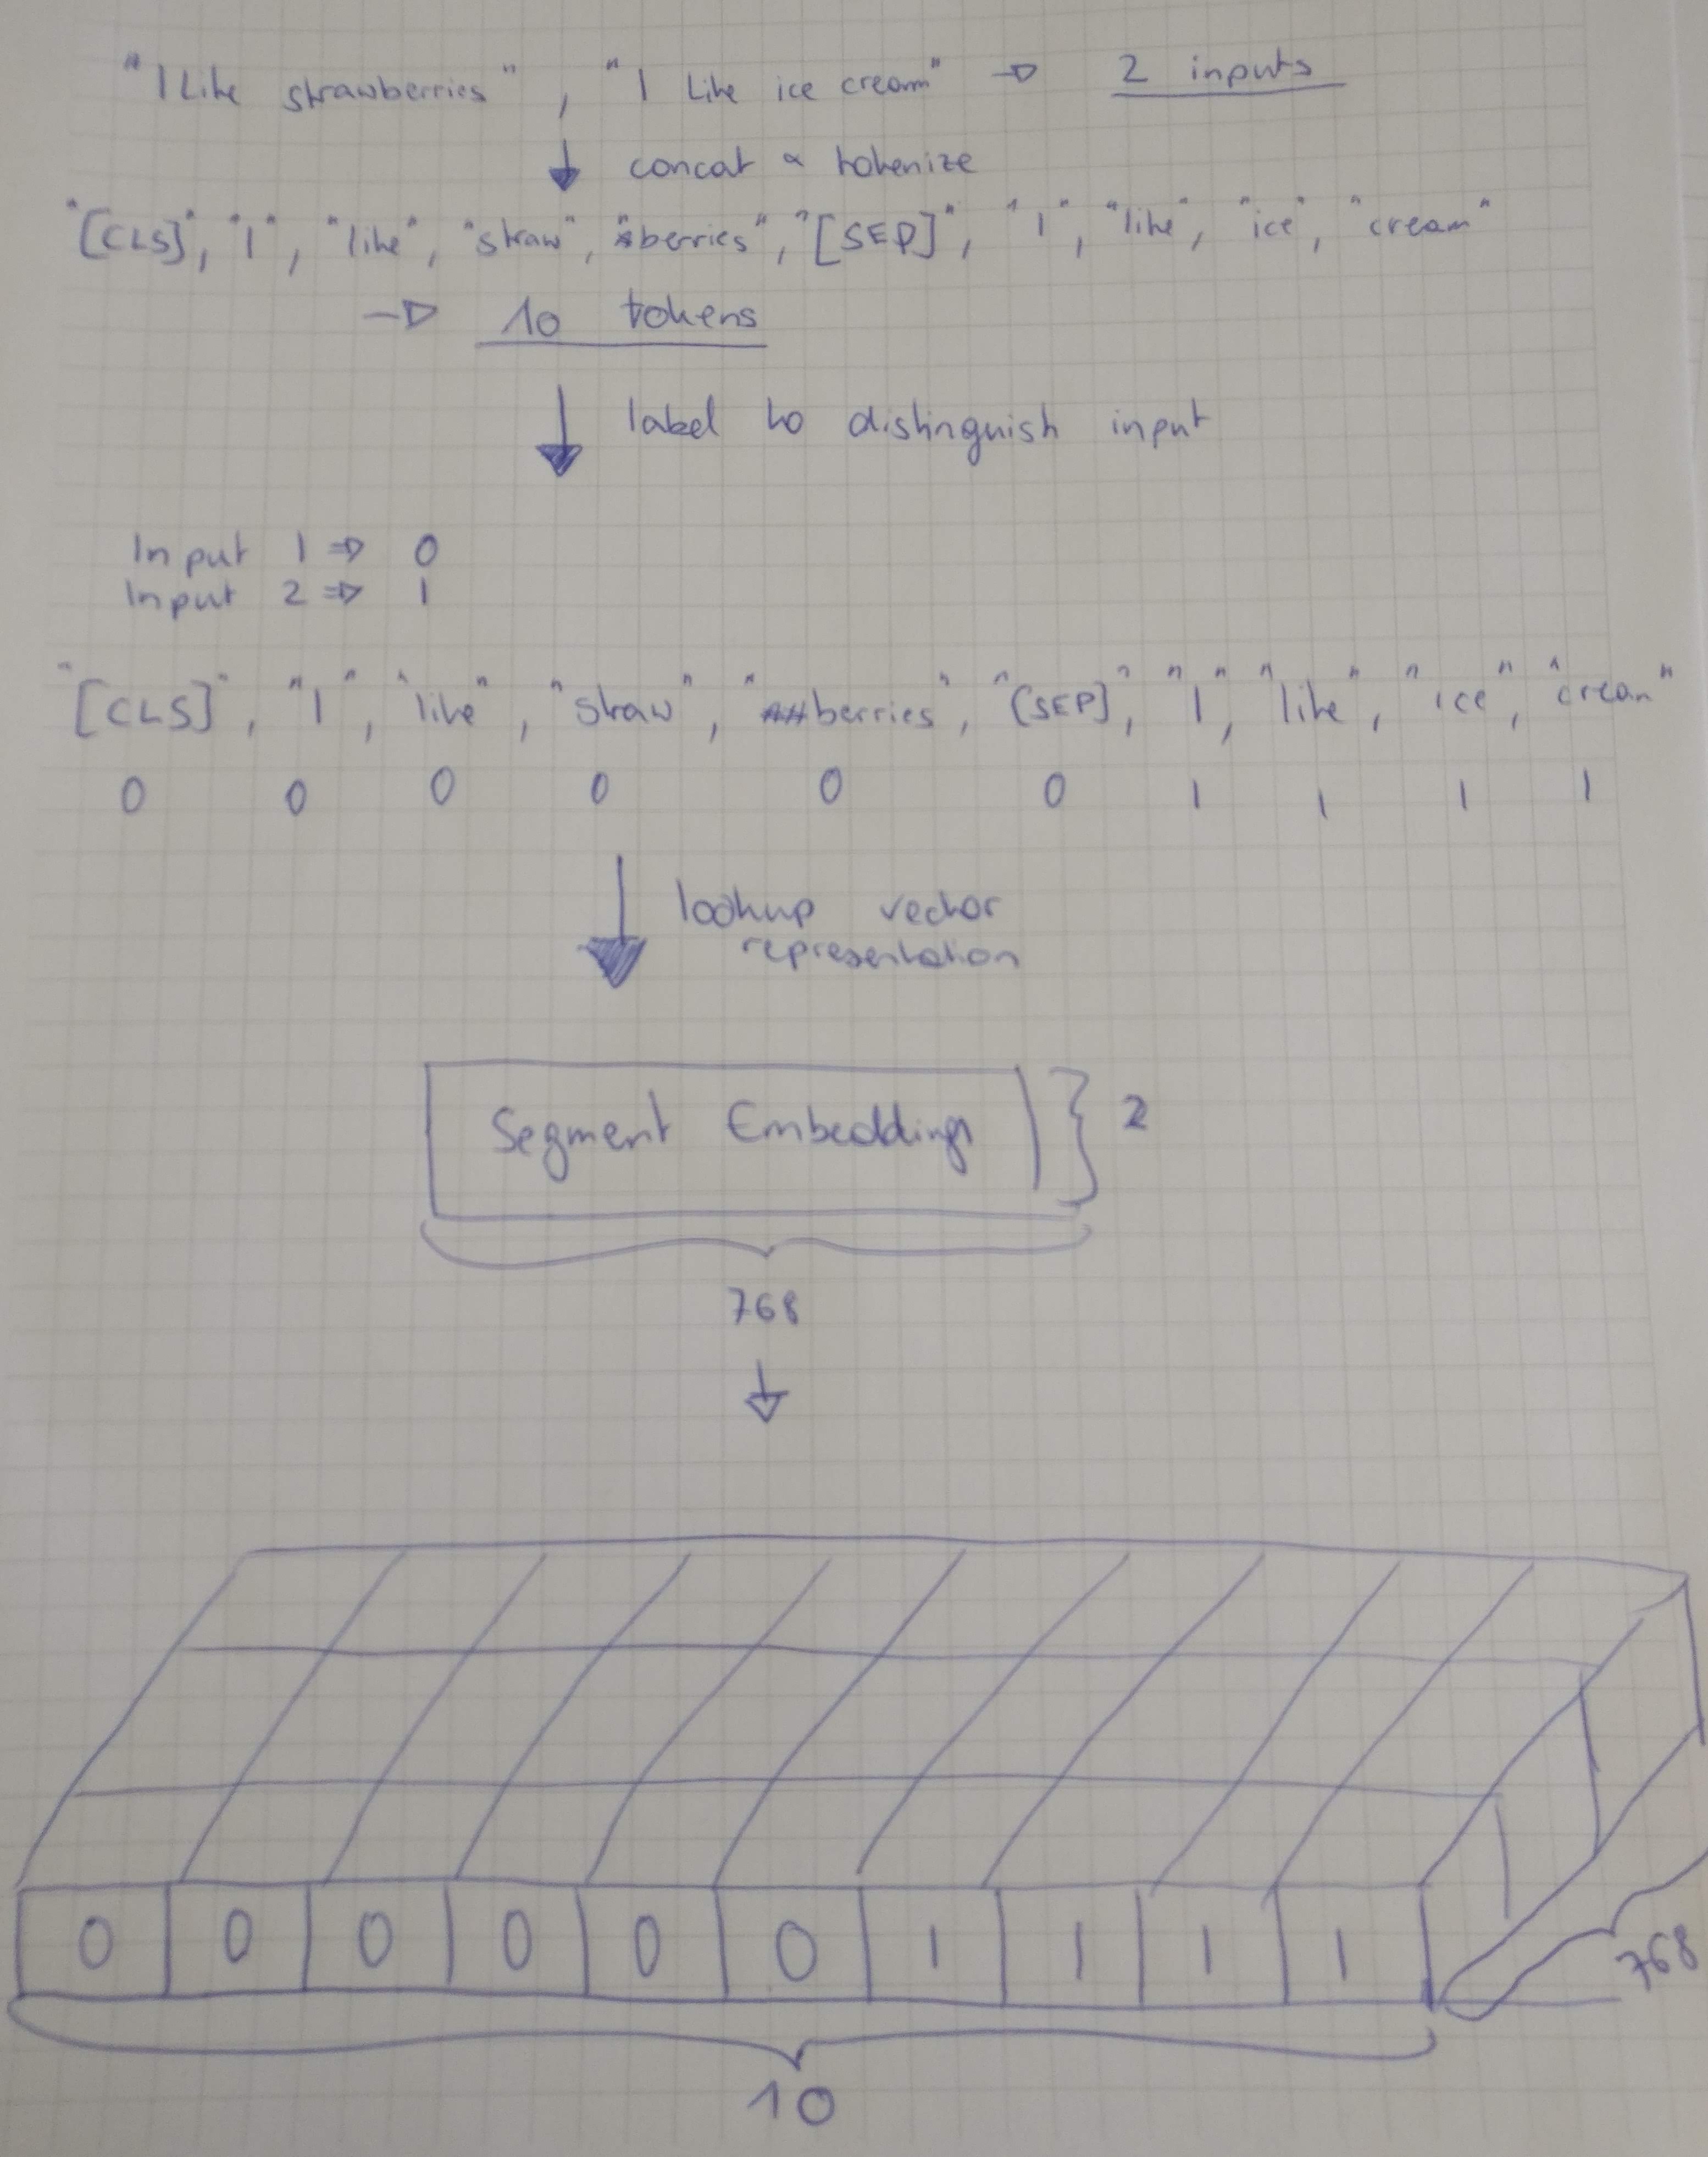 "I Like strawberries", "I Like ice cream" → 2 inputs
concat & tokenize
"[CLS]", "I", "like", "straw", "berries", "[SEP]", "I", "like", "ice", "cream"
→ 10 tokens
label to distinguish input
Input 1 ⇒ 0
Input 2 ⇒ 1
"[CLS]", "I", "like", "straw", "##berries", "[SEP]", "I", "like", "ice", "cream"
0 0 0 0 0 0 1 1 1 1
lookup vector
representation
Segment Embeddings } 2
768
0 0 0 0 0 0 1 1 1 1
768
10